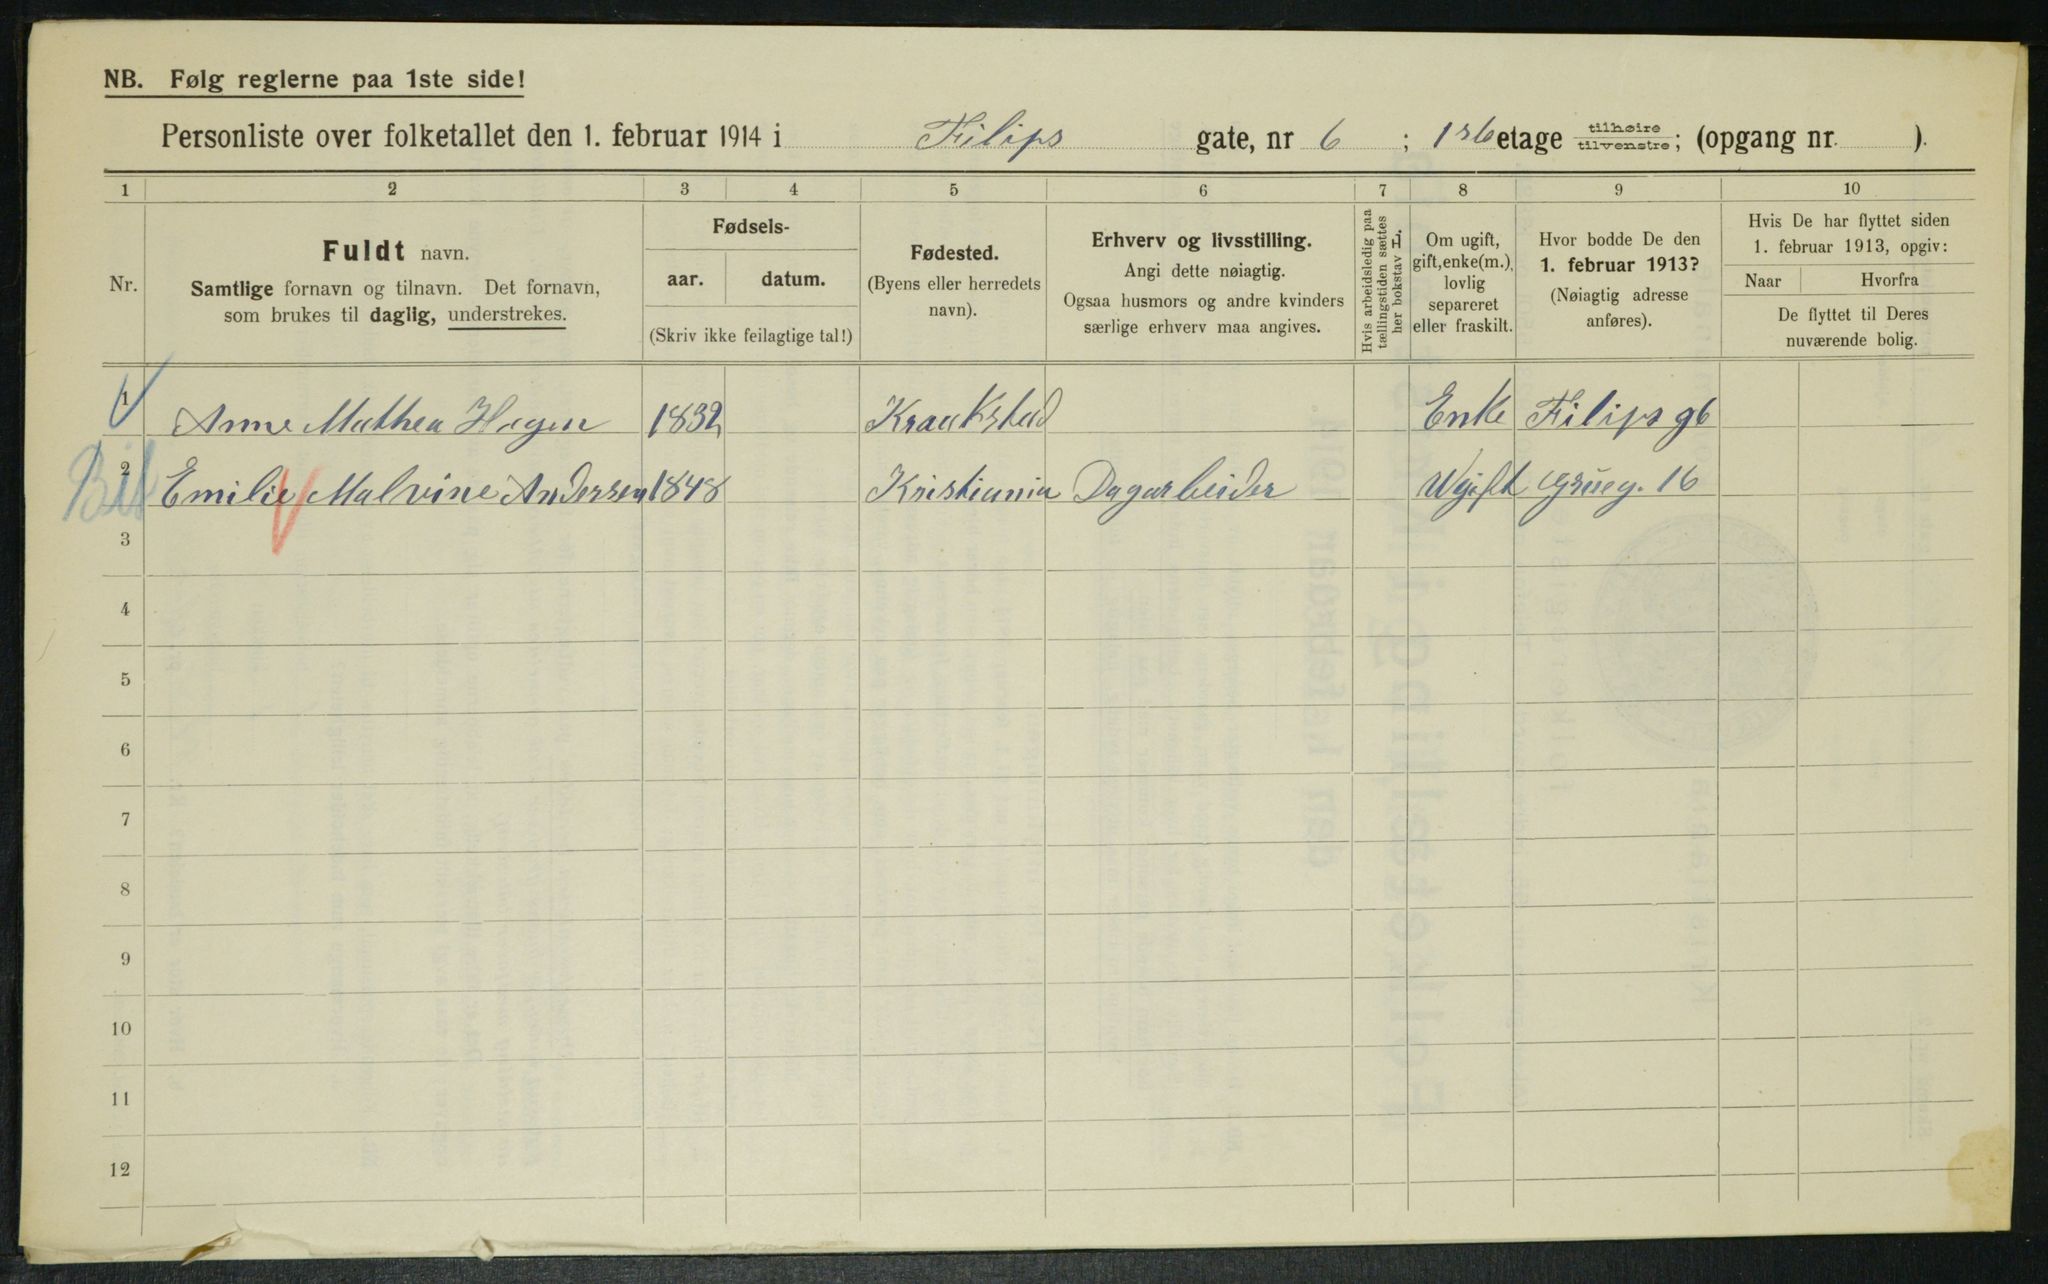 NB. Følg reglerne paa 1ste side!
Personliste over folketallet den 1. februar 1914 i Filips gate, nr 6 ; 1ste etage tilhøire / tilvenstre; (opgang nr. ).
1 2 3 4 5 6 7 8 9 10
Nr.
Fuldt navn.
Samtlige fornavn og tilnavn. Det fornavn,
som brukes til daglig, understrekes.
Fødsels-
aar. datum.
(Skriv ikke feilagtige tal!)
Fødested.
(Byens eller herredets
navn).
Erhverv og livsstilling.
Angi dette nøiagtig.
Ogsaa husmors og andre kvinders
særlige erhverv maa angives.
Hvis arbeidsledig paa
tællingstiden sættes
her bokstav L.
Om ugift,
gift, enke(m.),
lovlig
separeret
eller fraskilt.
Hvor bodde De den
1. februar 1913?
(Nøiagtig adresse
anføres).
Hvis De har flyttet siden
1. februar 1913, opgiv:
Naar Hvorfra
De flyttet til Deres
nuværende bolig.
1 Anne Mathea Hagen 1832 Kraakstad Enke Filips g 6
2 Emilie Malvine Andersen 1848 Kristiania Dagarbeider Ugift Grüeg. 16
3
4
5
6
7
8
9
10
11
12